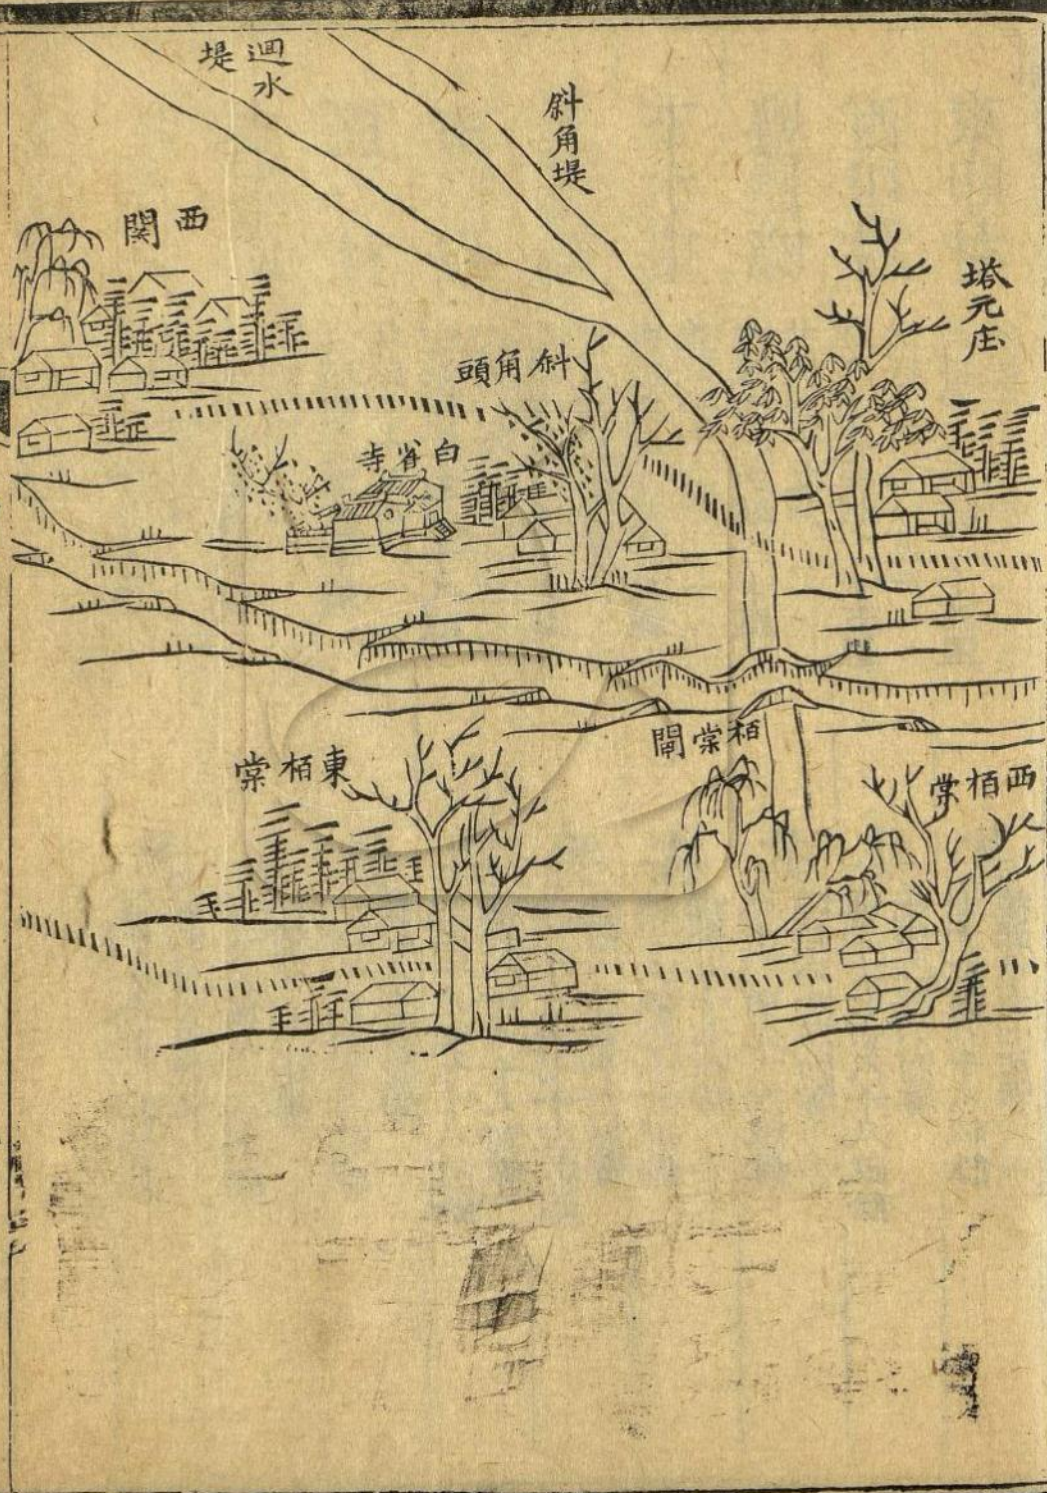 迴水堤
斜角堤
西関
塔元庄
斜角頭
白雀寺
栢棠閘
東栢棠
西栢棠